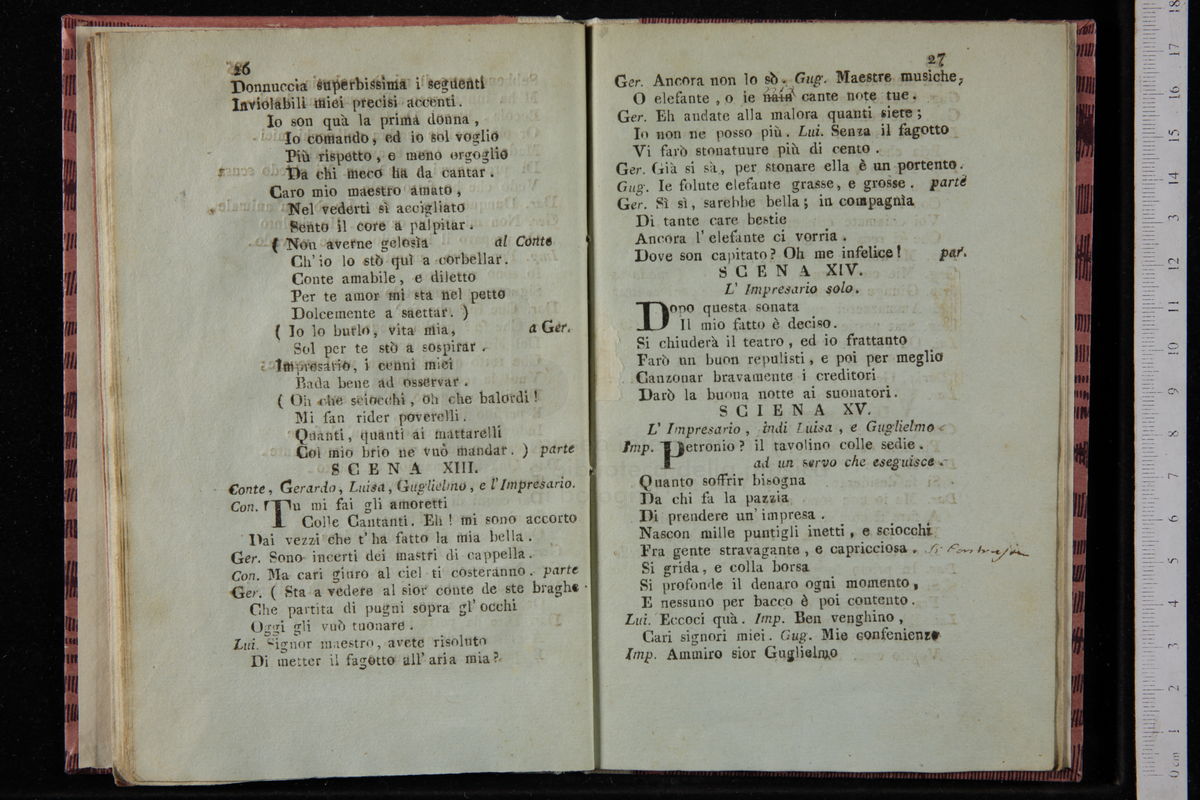 26
Donnuccia superbissima i seguenti
Inviolabili miei precisi accenti.
Io son quà la prima donna,
Io comando, ed io sol voglio
Più rispetto, e meno orgoglio
Da chi meco ha da cantar.
Caro mio maestro amato,
Nel vederti sì accigliato
Sento il core a palpitar.
( Non averne gelosìa al Conte
Ch' io lo stò quì a corbellar.
Conte amabile, e diletto
Per te amor mi sta nel petto
Dolcemente a saettar. )
( Io lo burlo, vita mia, a Ger.
Sol per te stò a sospirar.
Impresario, i cenni miei
Bada bene ad osservar.
( Oh che sciocchi, oh che balordi!
Mi fan rider poverelli.
Quanti, quanti ai mattarelli
Col mio brio ne vuò mandar. ) parte
SCENA XIII.
Conte, Gerardo, Luisa, Guglielmo, e l'Impresario.
Con. Tu mi fai gli amoretti
Colle Cantanti. Eh! mi sono accorto
Dai vezzi che t' ha fatto la mia bella.
Ger. Sono incerti dei mastri di cappella.
Con. Ma cari giuro al ciel ti costeranno. parte
Ger. ( Sta a vedere al sior conte de ste braghe
Che partita di pugni sopra gl' occhi
Oggi gli vuò tuonare.
Lui. Signor maestro, avete risoluto
Di metter il fagotto all' aria mia?
27
Ger. Ancora non lo sò. Gug. Maestre musiche,
O elefante, o ie cante note tue.
Ger. Eh andate alla malora quanti siete;
Io non ne posso più. Lui. Senza il fagotto
Vi farò stonatuure più di cento.
Ger. Già si sà, per stonare ella è un portento.
Gug. Ie folute elefante grasse, e grosse. parte
Ger. Sì sì, sarebbe bella; in compagnìa
Di tante care bestie
Ancora l' elefante ci vorria.
Dove son capitato? Oh me infelice! par.
SCENA XIV.
L' Impresario solo.
Dopo questa sonata
Il mio fatto è deciso.
Si chiuderà il teatro, ed io frattanto
Farò un buon repulisti, e poi per meglio
Canzonar bravamente i creditori
Darò la buona notte ai suonatori.
SCIENA XV.
L' Impresario, indi Luisa, e Guglielmo.
Imp. Petronio? il tavolino colle sedie.
ad un servo che eseguisce.
Quanto soffrir bisogna
Da chi fa la pazzia
Di prendere un' impresa.
Nascon mille puntigli inetti, e sciocchi
Fra gente stravagante, e capricciosa.
Si grida, e colla borsa
Si profonde il denaro ogni momento,
E nessuno per bacco è poi contento.
Lui. Eccoci quà. Imp. Ben venghino,
Cari signori miei. Gug. Mie confenienze
Imp. Ammiro sior Guglielmo